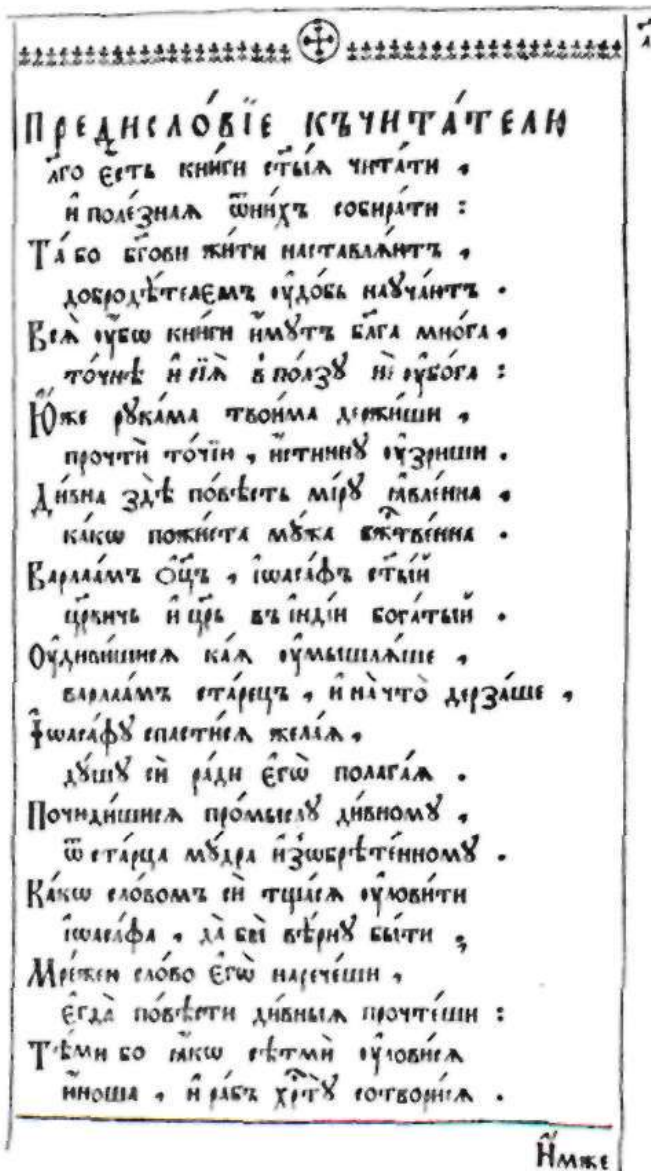 Предисло́вїе къ чита́телю
л҃го є҆сть кни́ги ст҃ы́ѧ чита́ти ,
и҆ поле́знаѧ ѿ ни́хъ собира́ти :
Та́ бо бг҃ови жи́ти наставлѧ́ютъ ,
добродѣ́телемъ ᲂу҆до́бь наꙋча́ютъ .
Всѧ̀ ᲂу҆́бѡ кни́ги и҆́мꙋтъ бл҃га мнѡ́га ,
то́чнѣ и҆ сїѧ̀ в̾ по́лзꙋ не ᲂу҆бо́га :
Ю҆́же рꙋка́ма твои́ма держи́ши ,
прочтѝ то́чїю , и҆́стиннꙋ ᲂу҆́зриши .
Ди́вна здѣ̀ по́вѣсть мі́рꙋ ꙗ҆вле́нна ,
ка́кѡ пожи́ста мꙋ́жа бж҃тве́нна .
Варлаа́мъ ѻ҆ц҃ъ , і҆ѡаса́фъ ст҃ы́й
цр҃вичь и҆ цр҃ь въ і҆нді́и бога́тый .
Оу҆диви́шисѧ ка́ѧ ᲂу҆мышлѧ́ше ,
варлаа́мъ ста́рецъ , и҆ на что̀ дерза́ше ,
І҆ѡаса́фꙋ спасти́сѧ жела́ѧ ,
дꙋ́шꙋ си́ ра́ди є҆гѡ̀ полага́ѧ .
Почꙋди́шисѧ про́мыслꙋ ди́вномꙋ ,
ѿ ста́рца мꙋ́дра и҆з̾ѡбрѣте́нномꙋ .
Ка́кѡ сло́вомъ си́ тща́сѧ ᲂу҆лови́ти
і҆ѡаса́фа , да̀ бы̀ вѣ́рнꙋ бы́ти ;
Мре́жеи сло́во є҆гѡ̀ нарече́ши ,
є҆гда̀ по́вѣсти ди́вныѧ прочте́ши :
Тѣ́ми бо ꙗ҆́кѡ сѣтмѝ ᲂу҆лови́сѧ
ю҆́ноша , и҆ ра́бъ хр҃тꙋ̀ сотвори́сѧ .
И҆́мже